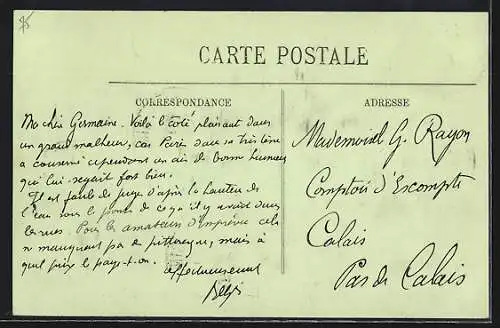 75
CARTE POSTALE
CORRESPONDANCE
ADRESSE
Ma chère Germaine. Voilà le côté plaisant dans
un grand malheur, car Paris dans sa tristesse
a conservé cependant un air de bonne humeur
qui lui seyait fort bien.
Il est facile de juger d'après la hauteur de
l'eau sous le ponts de ce qu'il y avait dans
les rues. Pour les amateurs d'imprévu cela
n manquait pas de pittoresque, mais à
quel prix le paye-t-on.
affectueusement
Mademoisel G. Rayon
Comptoir d'Escompte
Calais
Pas de Calais